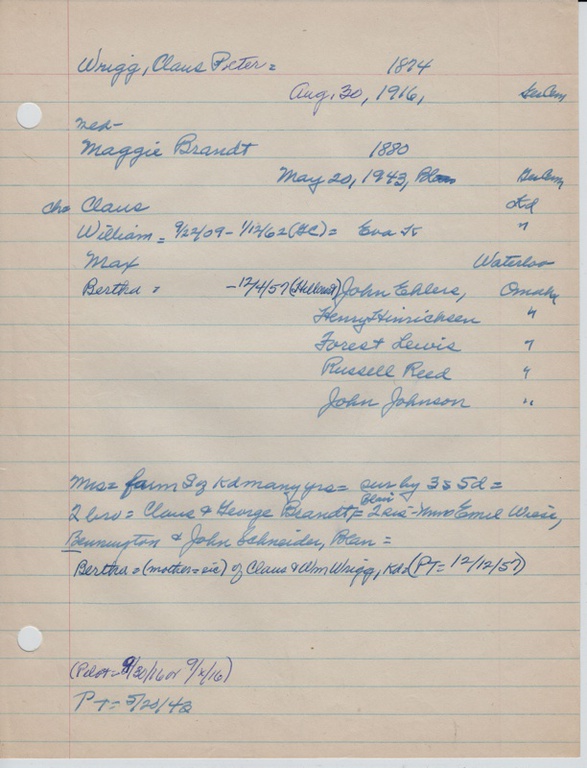 Wrigg, Claus Peter = 1874
Aug. 30, 1916, Ger Cem
med-
Maggie Brandt 1880
May 20, 1943, Ger Cem
ch= Claus Kd
William = 9/22/09 - 1/12/62 (GC) = Eva K "
Max Waterloo
Bertha = - 12/4/57 (Hillcrest) John Ehlers, Omaha
Henry Hinrichsen "
Forest Lewis "
Russell Reed "
John Johnson "
Mrs = farm S of Kd many yrs = sur by 3s 5d =
2 bro = Claus & George Brandt, Blair = 2 sis - Mmes Emil Wiese,
Bennington & John Schneider, =
Bertha = (mother = sic) of Claus & Wm Wrigg, Kd = (PT = 12/12/57)
(Pilot = 9/16)
PT = 5/20/43